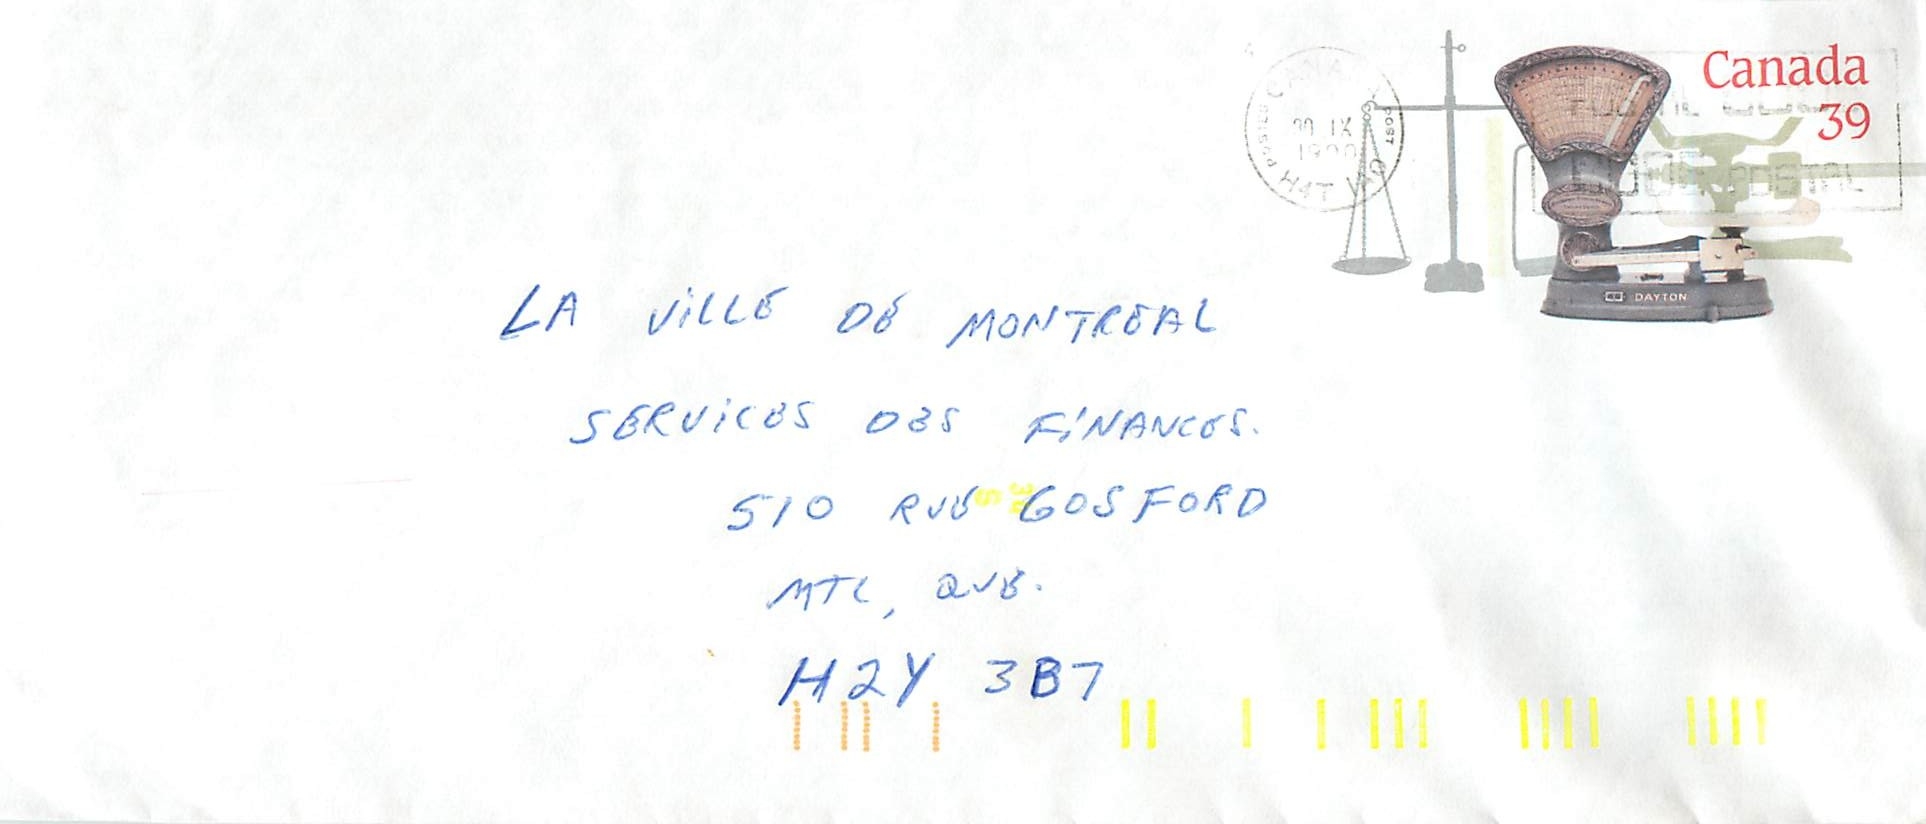 Canada
39
POSTES CANADA POST
IX
H4T
POSTAL CODE
CODE POSTAL
DAYTON
LA VILLE DE MONTREAL
SERVICES DES FINANCES.
510 RUE GOSFORD
MTL, QUE.
H2Y 3B7